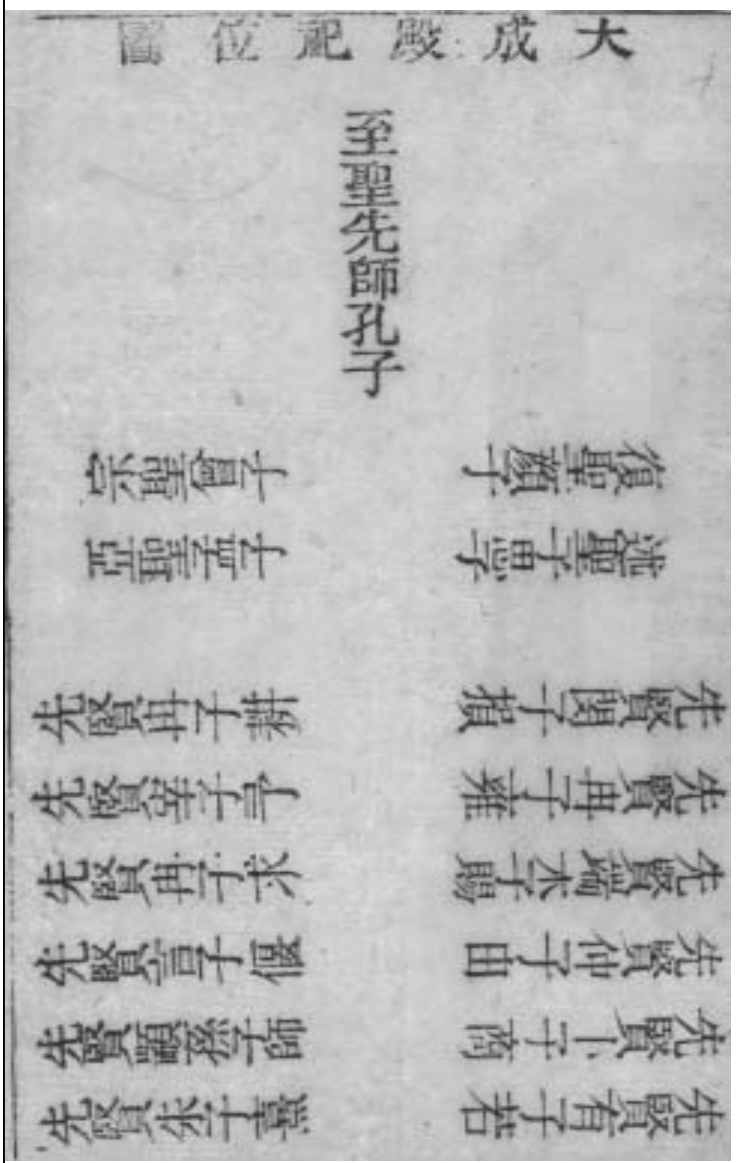 大成殿祀位圖
至聖先師孔子
復聖顏子
述聖子思子
先賢閔子損
先賢冉子雍
先賢端木子賜
先賢仲子由
先賢卜子商
先賢有子若
宗聖曾子
亞聖孟子
先賢冉子耕
先賢宰子予
先賢冉子求
先賢言子偃
先賢顓孫子師
先賢朱子熹